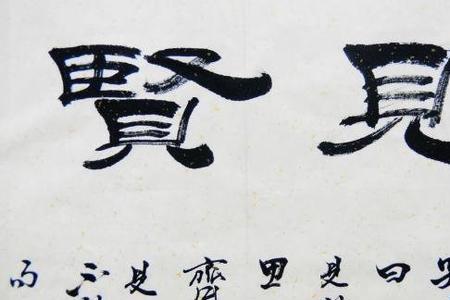 見賢
曰
見
里
齊
見
不
而